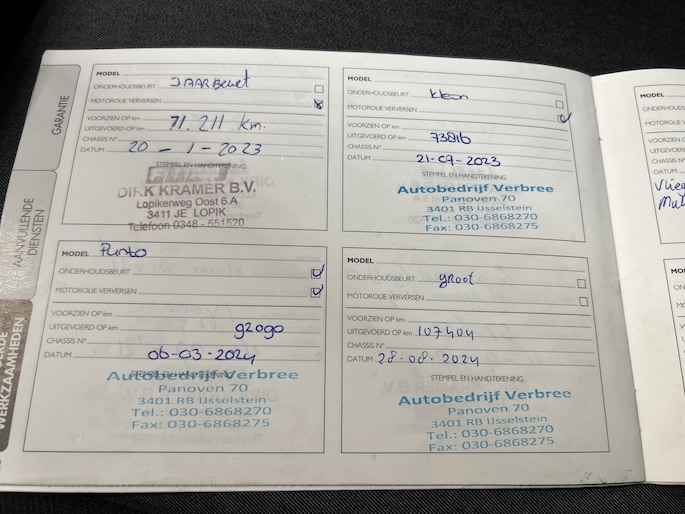 GARANTIE
AANVULLENDE
DIENSTEN
WERKZAAMHEDEN
MODEL
ONDERHOUDSBEURT JAARBeurt
MOTOROLIE VERVERSEN
VOORZIEN OP km
UITGEVOERD OP km 71.211 km.
CHASSIS N°
DATUM 20-1-2023
STEMPEL EN HANDTEKENING
DIRK KRAMER B.V.
Lopikerweg Oost 6 A
3411 JE LOPIK
Telefoon 0348 - 551520
MODEL
ONDERHOUDSBEURT klein
MOTOROLIE VERVERSEN
VOORZIEN OP km
UITGEVOERD OP km 73816
CHASSIS N°
DATUM 21-09-2023
STEMPEL EN HANDTEKENING
Autobedrijf Verbree
Panoven 70
3401 RB IJsselstein
Tel.: 030-6868270
Fax: 030-6868275
MODEL Punto
ONDERHOUDSBEURT
MOTOROLIE VERVERSEN
VOORZIEN OP km
UITGEVOERD OP km 92090
CHASSIS N°
DATUM 06-03-2024
STEMPEL EN HANDTEKENING
Autobedrijf Verbree
Panoven 70
3401 RB IJsselstein
Tel.: 030-6868270
Fax: 030-6868275
MODEL
ONDERHOUDSBEURT groot
MOTOROLIE VERVERSEN
VOORZIEN OP km
UITGEVOERD OP km 107404
CHASSIS N°
DATUM 28-08-2024
STEMPEL EN HANDTEKENING
Autobedrijf Verbree
Panoven 70
3401 RB IJsselstein
Tel.: 030-6868270
Fax: 030-6868275